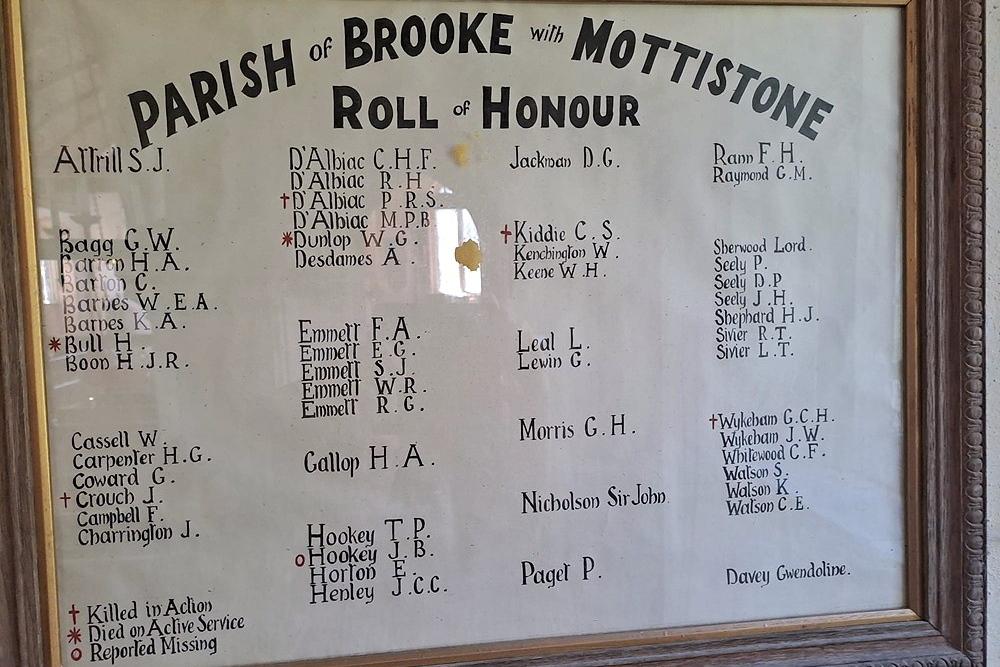 PARISH of BROOKE with MOTTISTONE
ROLL of HONOUR
Attrill S.J.
Bagg G.W.
Barton H.A.
Barton C.
Barnes W.E.A.
Barnes K.A.
* Bull H.
Boon H.J.R.
Cassell W.
Carpenter H.G.
Coward G.
† Crouch J.
Campbell F.
Charrington J.
D'Albiac C.H.F.
D'Albiac R.H.
† D'Albiac P.R.S.
D'Albiac M.P.B.
* Dunlop W.G.
Desdames A.
Emmett F.A.
Emmett E.G.
Emmett S.J.
Emmett W.R.
Emmett R.G.
Gallop H.A.
Hookey T.P.
o Hookey J.B.
Horton E.
Henley J.C.C.
Jackman D.G.
† Kiddie C.S.
Kenchington W.
Keene W.H.
Leal L.
Lewin G.
Morris G.H.
Nicholson Sir John.
Paget P.
Rann F.H.
Raymond G.M.
Sherwood Lord.
Seely P.
Seely D.P
Seely J.H.
Shephard H.J.
Sivier R.T.
Sivier L.T.
† Wykeham G.C.H.
Wykeham J.W.
Whitewood C.F.
Watson S.
Watson K.
Watson C.E.
Davey Gwendoline.
† Killed in Action
* Died on Active Service
o Reported Missing